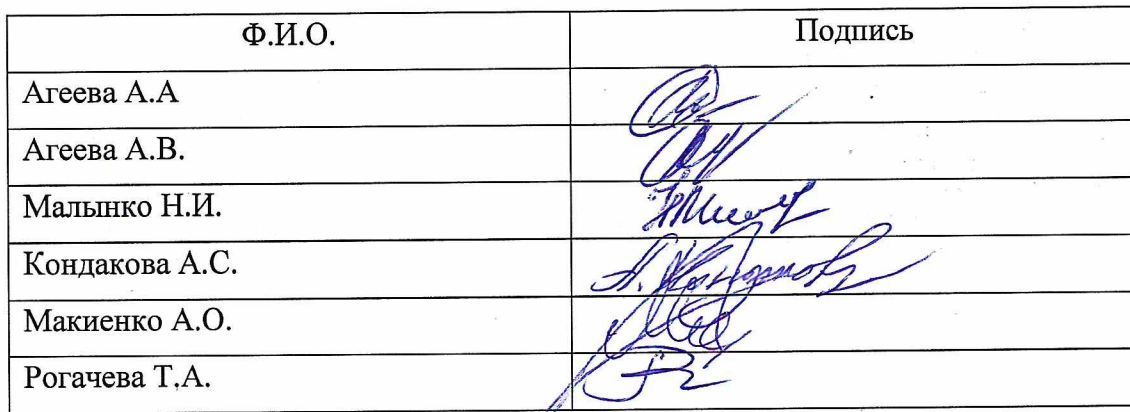 Ф.И.О. Подпись
Агеева А.А
Агеева А.В.
Малынко Н.И.
Кондакова А.С.
Макиенко А.О.
Рогачева Т.А.